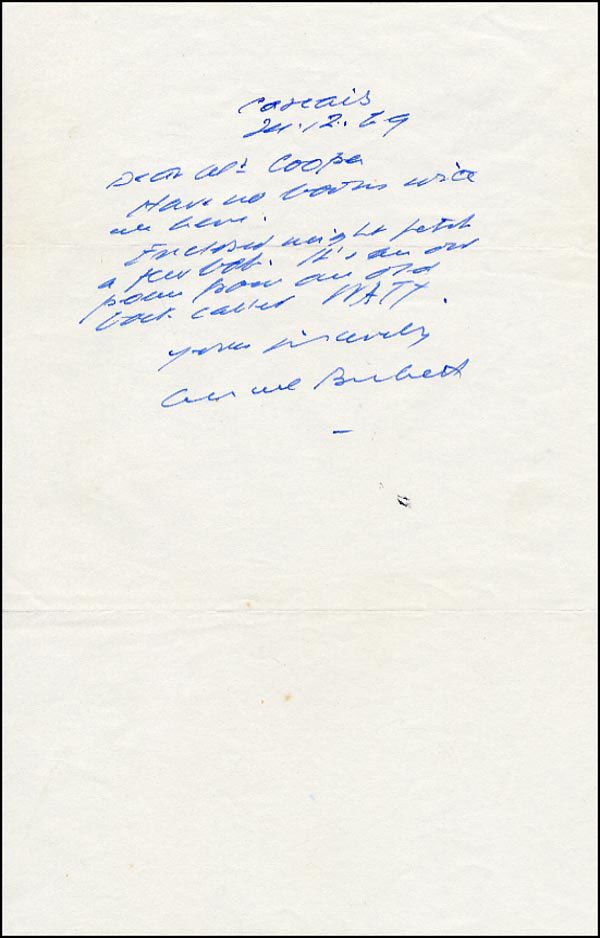 Cascais
24.12.69
Dear Mr Cooper
Have no books with
me here.
Enclosed might fetch
a few bob. It's an old
poem from an old
book called WATT.
Yours sincerely
Samuel Beckett